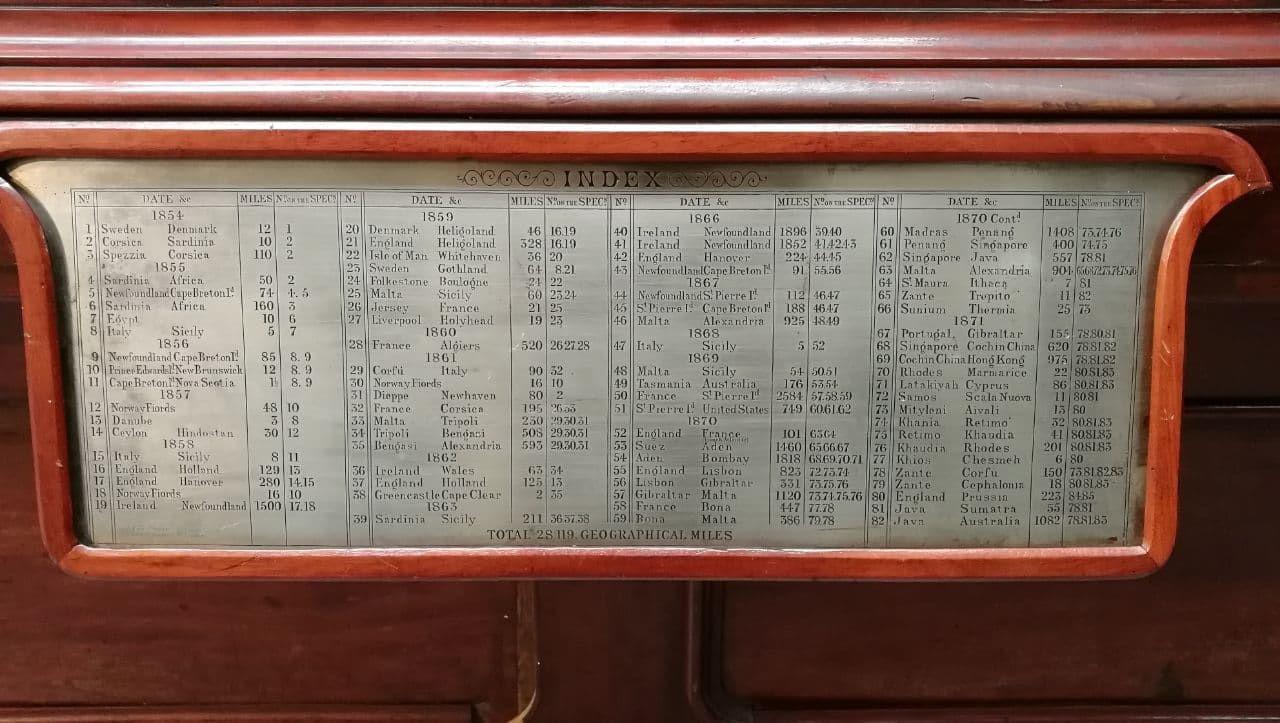 INDEX
Nº DATE &c MILES Nº ON THE SPECⁿ
1854
1 Sweden Denmark 12 1
2 Corsica Sardinia 10 2
3 Spezzia Corsica 110 2
1855
4 Sardinia Africa 50 2
5 Newfoundland Cape Breton Iᵈ 74 4. 5
6 Sardinia Africa 160 3
7 Egypt 10 6
8 Italy Sicily 5 7
1856
9 Newfoundland Cape Breton Iᵈ 85 8. 9
10 Prince Edwards Iᵈ New Brunswick 12 8. 9
11 Cape Breton Iᵈ Nova Scotia 8. 9
1857
12 Norway Fiords 48 10
13 Danube 3 8
14 Ceylon Hindostan 30 12
1858
15 Italy Sicily 8 11
16 England Holland 129 13
17 England Hanover 280 14.15
18 Norway Fiords 16 10
19 Ireland Newfoundland 1500 17.18
Nº DATE &c MILES Nº ON THE SPECⁿ
1859
20 Denmark Heligoland 46 16.19
21 England Heligoland 328 16.19
22 Isle of Man Whitehaven 36 20
23 Sweden Gothland 64 8.21
24 Folkestone Boulogne 24 22
25 Malta Sicily 60 23.24
26 Jersey France 21 25
27 Liverpool Holyhead 19 23
1860
28 France Algiers 520 26.27.28
1861
29 Corfu Italy 90 32
30 Norway Fiords 16 10
31 Dieppe Newhaven 80 2
32 France Corsica 195 26.33
33 Malta Tripoli 230 29.30.31
34 Tripoli Bengasi 508 29.30.31
35 Bengasi Alexandria 593 29.30.31
1862
36 Ireland Wales 63 34
37 England Holland 123 13
38 Greencastle Cape Clear 2 35
1863
39 Sardinia Sicily 211 36.37.38
Nº DATE &c MILES Nº ON THE SPECⁿ
1866
40 Ireland Newfoundland 1896 39.40
41 Ireland Newfoundland 1852 41.42.43
42 England Hanover 224 44.45
43 Newfoundland Cape Breton Iᵈ 91 55.56
1867
44 Newfoundland Sᵗ Pierre Iᵈ 112 46.47
45 Sᵗ Pierre Iᵈ Cape Breton Iᵈ 188 46.47
46 Malta Alexandria 925 48.49
1868
47 Italy Sicily 5 52
1869
48 Malta Sicily 54 50.51
49 Tasmania Australia 176 53.54
50 France Sᵗ Pierre Iᵈ 2584 57.58.59
51 Sᵗ Pierre Iᵈ United States 749 60.61.62
1870
52 England France 101 63.64
53 Suez Aden 1460 65.66.67
54 Aden Bombay 1818 68.69.70.71
55 England Lisbon 823 72.73.74
56 Lisbon Gibraltar 331 73.75.76
57 Gibraltar Malta 1120 73.74.75.76
58 France Bona 447 77.78
59 Bona Malta 386 79.78
Nº DATE &c MILES Nº ON THE SPECⁿ
1870 Contᵈ
60 Madras Penang 1408 73.74.76
61 Penang Singapore 400 74.75
62 Singapore Java 557 78.81
63 Malta Alexandria 904
64 Sᵗ Maura Ithaca 7 81
65 Zante Trepito 11 82
66 Sunium Thermia 25 73
1871
67 Portugal Gibraltar 155 78.80.81
68 Singapore Cochin China 620 78.81.82
69 Cochin China Hong Kong 975 78.81.82
70 Rhodes Marmarice 22 80.81.83
71 Latakiyah Cyprus 86 80.81.83
72 Samos Scala Nuova 11 80.81
73 Mityleni Aivali 13 80
74 Khania Retimo 32 80.81.83
75 Retimo Khandia 41 80.81.83
76 Khandia Rhodes 201 80.81.83
77 Khios Chesmeh 6 80
78 Zante Corfu 150 73.81.82.83
79 Zante Cephalonia 18 80.81.83
80 England Prussia 223 84.85
81 Java Sumatra 55 78.81
82 Java Australia 1082 78.81.83
TOTAL 28 119. GEOGRAPHICAL MILES